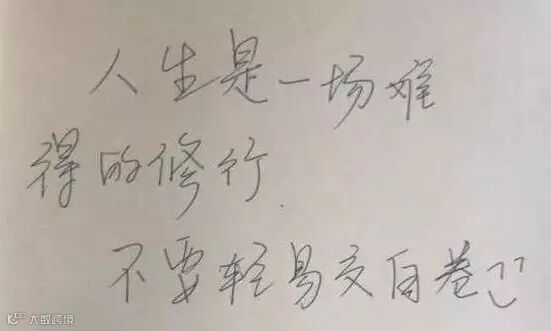 人生是一场难
得的修行
不要轻易交白卷
大数跨境